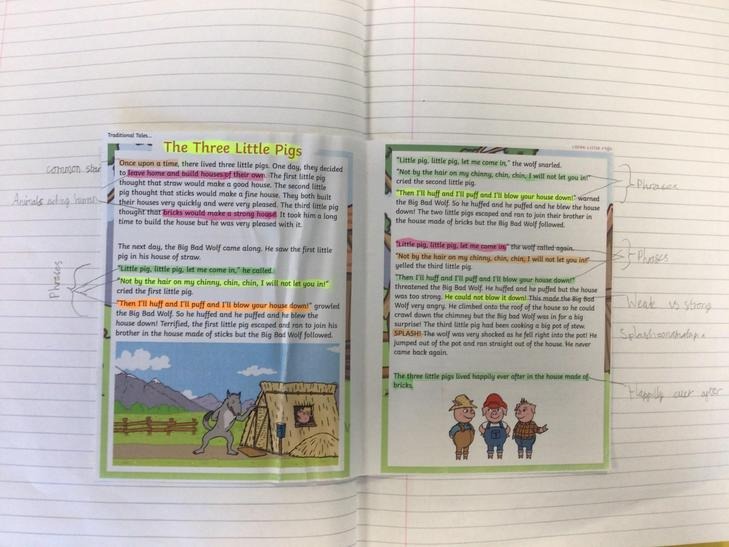 Traditional Tales...
The Three Little Pigs
Once upon a time, there lived three little pigs. One day, they decided
to leave home and build houses of their own. The first little pig
thought that straw would make a good house. The second little
pig thought that sticks would make a fine house. They both built
their houses very quickly and were very pleased. The third little pig
thought that bricks would make a strong house. It took him a long
time to build the house but he was very pleased with it.
The next day, the Big Bad Wolf came along. He saw the first little
pig in his house of straw.
"Little pig, little pig, let me come in," he called.
"Not by the hair on my chinny, chin, chin, I will not let you in!"
cried the first little pig.
"Then I'll huff and I'll puff and I'll blow your house down!" growled
the Big Bad Wolf. So he huffed and he puffed and he blew the
house down! Terrified, the first little pig escaped and ran to join his
brother in the house made of sticks but the Big Bad Wolf followed.
common
Animals acting
Phrases
Three Little Pigs
"Little pig, little pig, let me come in," the wolf snarled.
"Not by the hair on my chinny, chin, chin, I will not let you in!"
cried the second little pig.
"Then I'll huff and I'll puff and I'll blow your house down!" warned
the Big Bad Wolf. So he huffed and he puffed and he blew the house
down! The two little pigs escaped and ran to join their brother in
the house made of bricks but the Big Bad Wolf followed.
"Little pig, little pig, let me come in," the wolf called again.
"Not by the hair on my chinny, chin, chin, I will not let you in!"
yelled the third little pig.
"Then I'll huff and I'll puff and I'll blow your house down!"
threatened the Big Bad Wolf. He huffed and he puffed but the house
was too strong. He could not blow it down! This made the Big Bad
Wolf very angry. He climbed onto the roof of the house so he could
crawl down the chimney but the Big Bad Wolf was in for a big
surprise! The third little pig had been cooking a big pot of stew.
SPLASH! The wolf was very shocked as he fell right into the pot! He
jumped out of the pot and ran straight out of the house. He never
came back again.
The three little pigs lived happily ever after in the house made of
bricks.
Phrases
Phrases
Weak vs strong
Happily ever after